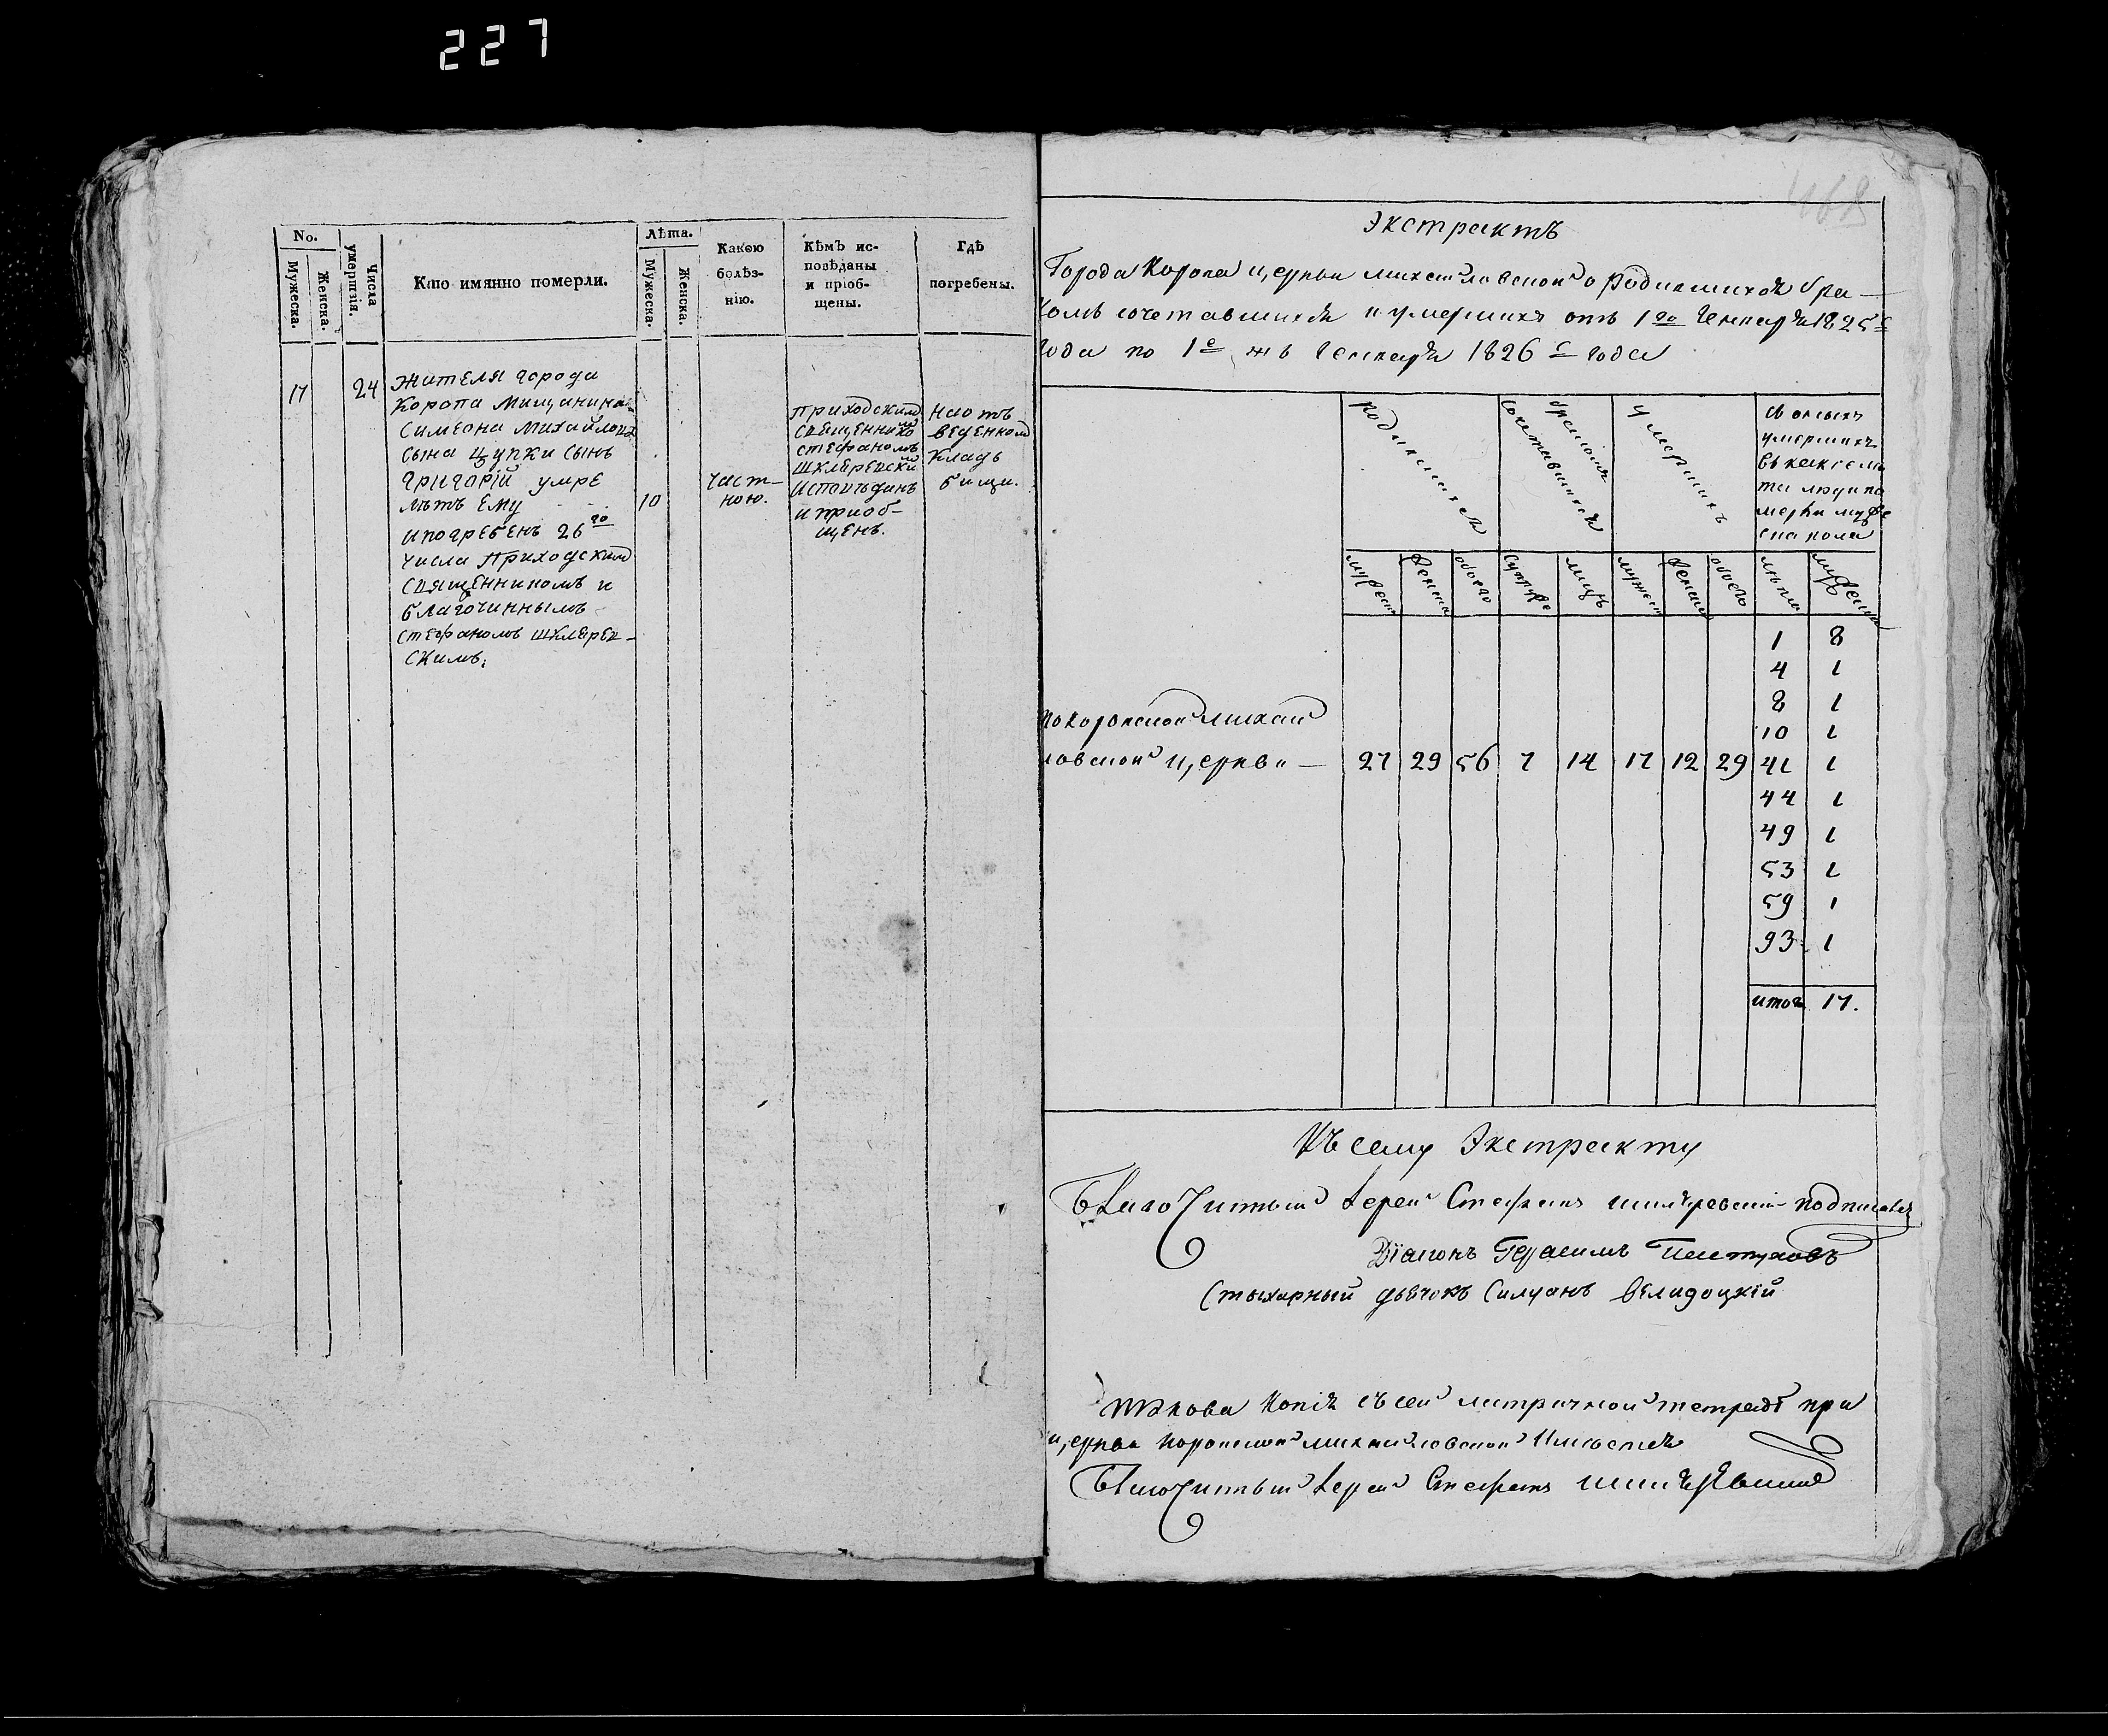 227
No.
Мужеска.
Женска.
Числа умершія.
Кто имянно померли.
Лѣта.
Мужеска.
Женска.
Какою
болѣз-
нію.
Кѣмъ ис-
повѣданы
и пріоб-
щены.
Гдѣ
погребены.
17
24
Жителя города
Коропа Мищанина
Симеона Михайлова
сына Цупки сынъ
Григорій умре
лѣтъ ему
10
и погребенъ 26го
числа Приходскимъ
священникомъ и
благочиннымъ
Стефаномъ Шклярев-
скимъ.
част-
ною.
приходскимъ
священнико
Стефаномъ
Шкляревски
исповѣданъ
и приоб-
щенъ.
на отъ
веденномъ
кладь
бищи.
468
Экстрактъ
Города Коропа церкви Михайловской о родившихся бра-
комъ сочетавшихся и умершихъ отъ 1го Генваря 1825г
года по 1е ж Генваря 1826г года
родившихся
бракомъ сочетавшихся
умершихъ
умершихъ
мерли муже
ска пола
мужеск
женска
обоего
супруже
лицъ
мужеск
женска
обоего
лѣта
мужеска
1 8
4 1
8 1
10 1
по коропской Михай
ловской церкви — 27 29 56 7 14 17 12 29 41 1
44 1
49 1
53 1
59 1
93 1
итог 17.
Къ сему Экстракту
Благочинный Іерей Стефанъ Шкляревскій подписался
Діаконъ Герасимъ Пастуховъ
Стихарный дьячокъ Силуанъ Велидоцкій
Такова копія съ сей метричной тетради при
церкви коропской Михайловской имѣется
Благочинный Іерей Стефанъ Шкляревский